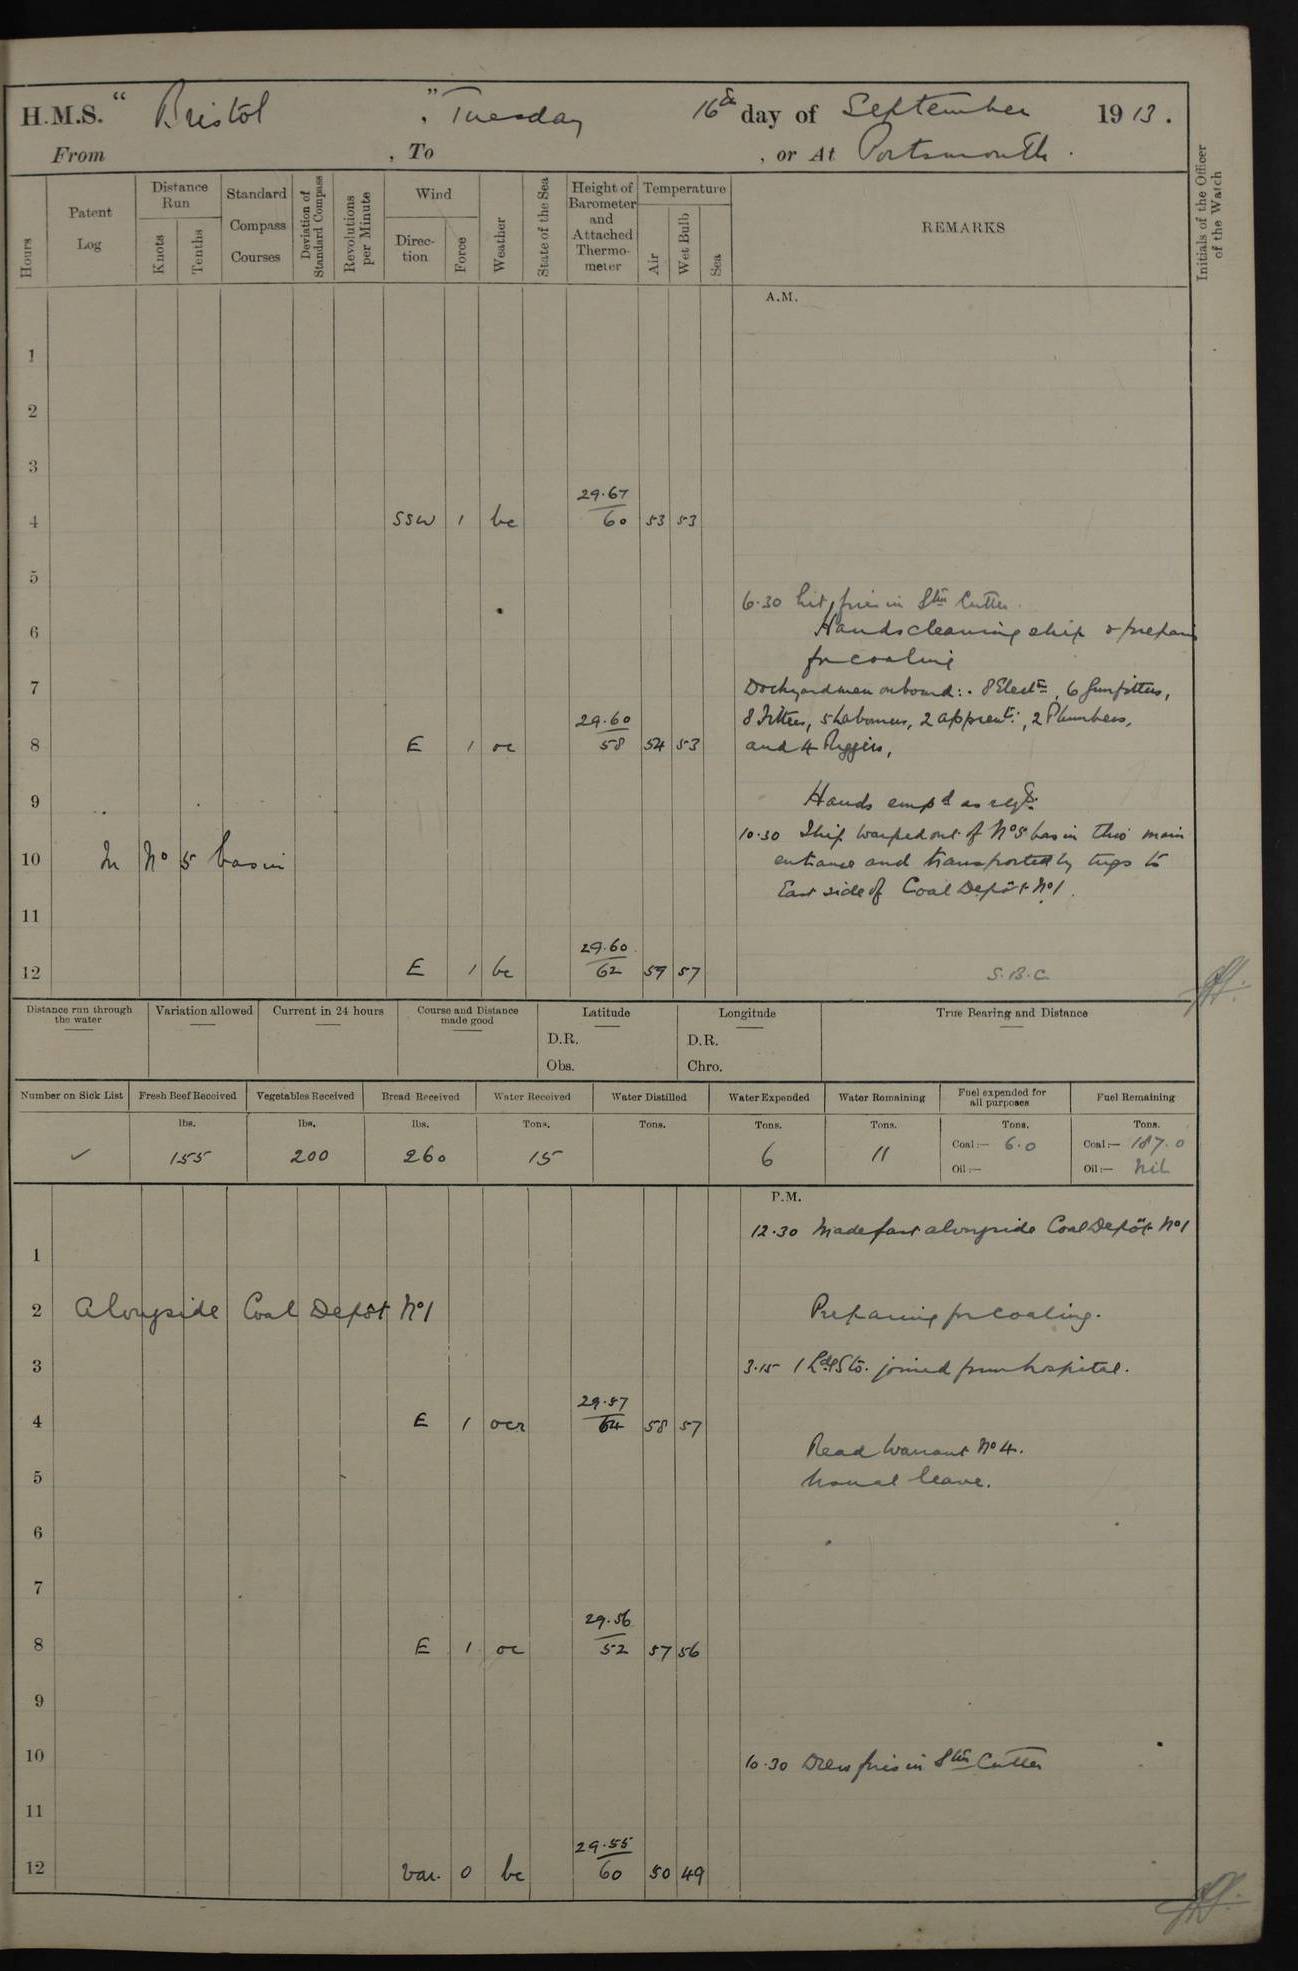 H.M.S. " Bristol ", Tuesday 16th day of September 1913.
From , To , or At Portsmouth.
Hours
Patent Log
Distance Run
Knots
Tenths
Standard Compass Courses
Deviation of Standard Compass
Revolutions per Minute
Wind
Direc-tion
Force
Weather
State of the Sea
Height of Barometer and Attached Thermo-meter
Temperature
Air
Wet Bulb
Sea
REMARKS
Initials of the Officer of the Watch
A.M.
1
2
3
29.67
4 SSW 1 bc 60 53 53
5
6.30 Lit fires in Stm Cutter.
6 Hands cleaning ship & prepare
for coaling
7 Dockyardmen onboard:- 8 Electn, 6 Gunfitters,
29.60 8 Fitters, 5 Labourers, 2 apprents, 2 Plumbers,
8 E 1 oc 58 54 53 and 4 Riggers,
9 Hands emp'd as reqd.
10.30 Ship warped out of No 5 basin thro' main
10 In No 5 basin entrance and transported by tugs to
East side of Coal Depôt No 1.
11
29.60
12 E 1 bc 62 59 57 S.B.C.
Distance run through the water
Variation allowed
Current in 24 hours
Course and Distance made good
Latitude
D.R.
Obs.
Longitude
D.R.
Chro.
True Bearing and Distance
Number on Sick List ✓
Fresh Beef Received lbs. 155
Vegetables Received lbs. 200
Bread Received lbs. 260
Water Received Tons. 15
Water Distilled Tons.
Water Expended Tons. 6
Water Remaining Tons. 11
Fuel expended for all purposes Tons.
Coal:— 6.0
Oil:—
Fuel Remaining Tons.
Coal:— 187.0
Oil:— Nil
P.M.
12.30 Made fast alongside Coal Depôt No 1
1
2 Alongside Coal Depôt No 1 Preparing for coaling.
3 3.15 1 Ldg Sto. joined from hospital.
29.57
4 E 1 ocr 64 58 57
Read Warrant No 4.
5 Usual leave.
6
7
29.56
8 E 1 oc 52 57 56
9
10 10.30 Drew fires in Stm Cutter
11
29.55
12 Var. 0 bc 60 50 49